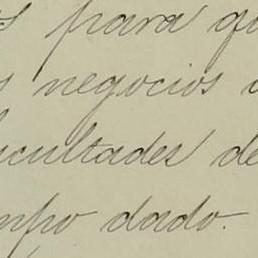 s para qu
s negocios d
facultades de
empo dado.